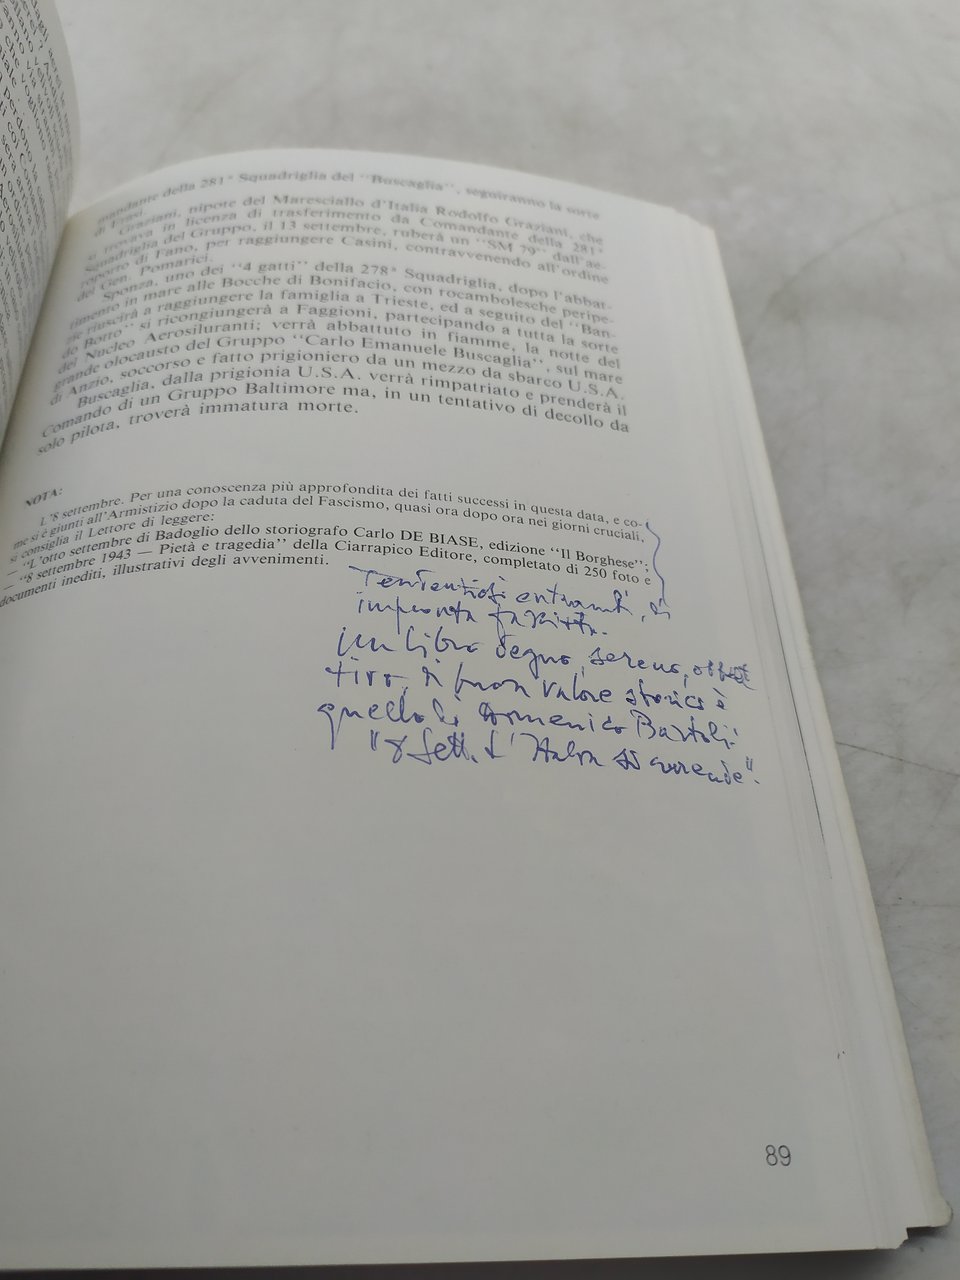 mandante della 281ª Squadriglia del "Buscaglia", seguiranno la sorte
di Erasi.
Graziani, nipote del Maresciallo d'Italia Rodolfo Graziani, che
si trovava in licenza di trasferimento da Comandante della 281ª
Squadriglia del Gruppo, il 13 settembre, ruberà un "SM 79" dall'ae-
roporto di Fano, per raggiungere Casini, contravvenendo all'ordine
del Gen. Pomarici.
Sponza, uno dei "4 gatti" della 278ª Squadriglia, dopo l'abbat-
timento in mare alle Bocche di Bonifacio, con rocambolesche peripe-
zie riuscirà a raggiungere la famiglia a Trieste, ed a seguito del "Ban-
do Botto" si ricongiungerà a Faggioni, partecipando a tutta la sorte
del Nucleo Aerosiluranti; verrà abbattuto in fiamme, la notte del
grande olocausto del Gruppo "Carlo Emanuele Buscaglia", sul mare
di Anzio, soccorso e fatto prigioniero da un mezzo da sbarco U.S.A.
Buscaglia, dalla prigionia U.S.A. verrà rimpatriato e prenderà il
Comando di un Gruppo Baltimore ma, in un tentativo di decollo da
solo pilota, troverà immatura morte.
NOTA:
L'8 settembre. Per una conoscenza più approfondita dei fatti successi in questa data, e co-
me si è giunti all'Armistizio dopo la caduta del Fascismo, quasi ora dopo ora nei giorni cruciali,
si consiglia il Lettore di leggere:
— "L'otto settembre di Badoglio dello storiografo Carlo DE BIASE, edizione "Il Borghese";
— "8 settembre 1943 — Pietà e tragedia" della Ciarrapico Editore, completato di 250 foto e
documenti inediti, illustrativi degli avvenimenti.
Tendenziosi entrambi, di
impronta fascista.
Un libro degno, sereno, obbiet
tivo, di buon valore storico è
quello di Domenico Bartoli:
"8 Sett. L'Italia si arrende".
89